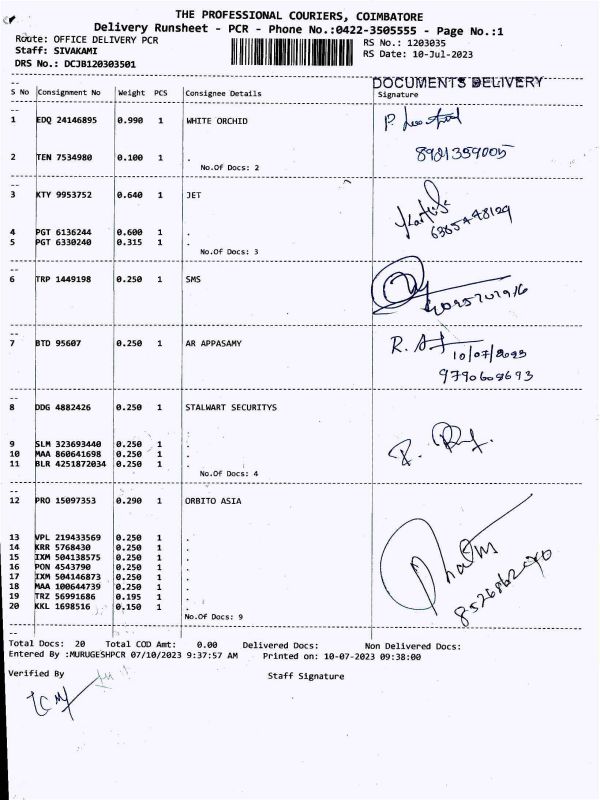 THE PROFESSIONAL COURIERS, COIMBATORE
Delivery Runsheet - PCR - Phone No.:0422-3505555 - Page No.:1
Route: OFFICE DELIVERY PCR RS No.: 1203035
Staff: SIVAKAMI RS Date: 10-Jul-2023
DRS No.: DCJB120303501
DOCUMENTS DELIVERY
S No Consignment No Weight PCS Consignee Details Signature
1 EDQ 24146895 0.990 1 WHITE ORCHID
2 TEN 7534980 0.100 1 . 8921359005
No.Of Docs: 2
3 KTY 9953752 0.640 1 JET
4 PGT 6136244 0.600 1 .
5 PGT 6330240 0.315 1 .
No.Of Docs: 3
6 TRP 1449198 0.250 1 SMS
7 BTD 95607 0.250 1 AR APPASAMY
10/07/2023
9790608693
8 DDG 4882426 0.250 1 STALWART SECURITYS
9 SLM 323693440 0.250 1 .
10 MAA 860641698 0.250 1 .
11 BLR 4251872034 0.250 1 .
No.Of Docs: 4
12 PRO 15097353 0.290 1 ORBITO ASIA
13 VPL 219433569 0.250 1 .
14 KRR 5768430 0.250 1 .
15 IXM 504138575 0.250 1 .
16 PON 4543790 0.250 1 .
17 IXM 504146873 0.250 1 .
18 MAA 100644739 0.250 1 .
19 TRZ 56991686 0.195 1 .
20 KKL 1698516 0.150 1 .
No.Of Docs: 9
Total Docs: 20 Total COD Amt: 0.00 Delivered Docs: Non Delivered Docs:
Entered By :MURUGESHPCR 07/10/2023 9:37:57 AM Printed on: 10-07-2023 09:38:00
Verified By Staff Signature